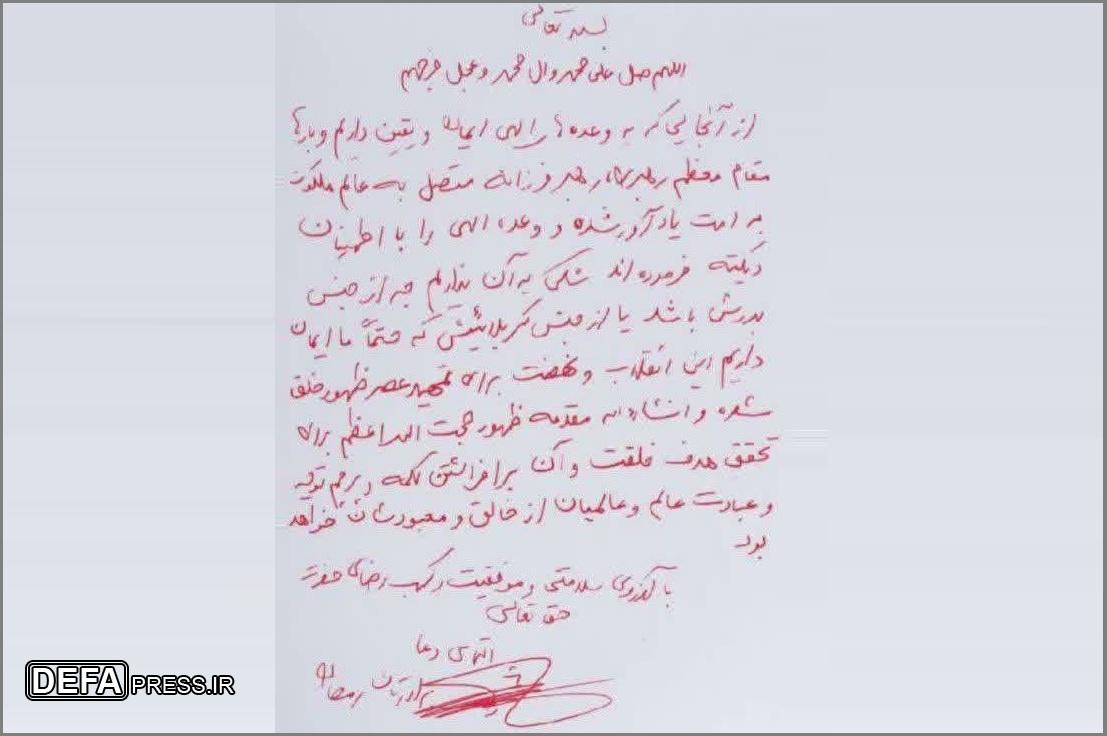 بسمه تعالی
اللهم صل علی محمد وال محمد وعجل فرجهم
از آنجایی که به وعده های الهی ایمان و یقین داریم و بارها
مقام معظم رهبری، رهبر فرزانه متصل به عالم ملکوت
به امت یادآور شده و وعده الهی را با اطمینان
فرموده اند شکی به آن نداریم چه از جنس
بدرش باشد یا از جنس کربلائیش که حتماً ما ایمان
داریم این انقلاب و نهضت برای تمهید عصر ظهور خلق
شده و انشاءاله مقدمه ظهور حجت اله اعظم برای
تحقق هدف خلقت و آن برافراشتن کلمه و پرچم توحید
و عبادت عالم و عالمیان از خالق و معبودشان خواهد
بود
با آرزوی سلامتی و موفقیت و کسب رضای حضرت
حق تعالی
التماس دعا
برادرتان رمضان
DEFAPRESS.IR